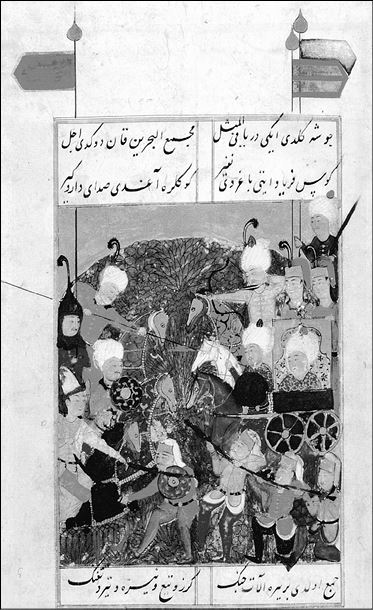 جوشه کلدی ایکی دریا فی المثل مجمع البحرین قان دوکدی اجل
کوس فریاد ایتدی باغردی نفیر کوکلره آغدی صدای دار و کیر
جمع اولدی بر یره آلات جنک کرز و تیغ و نیزه و تیر و تفنک